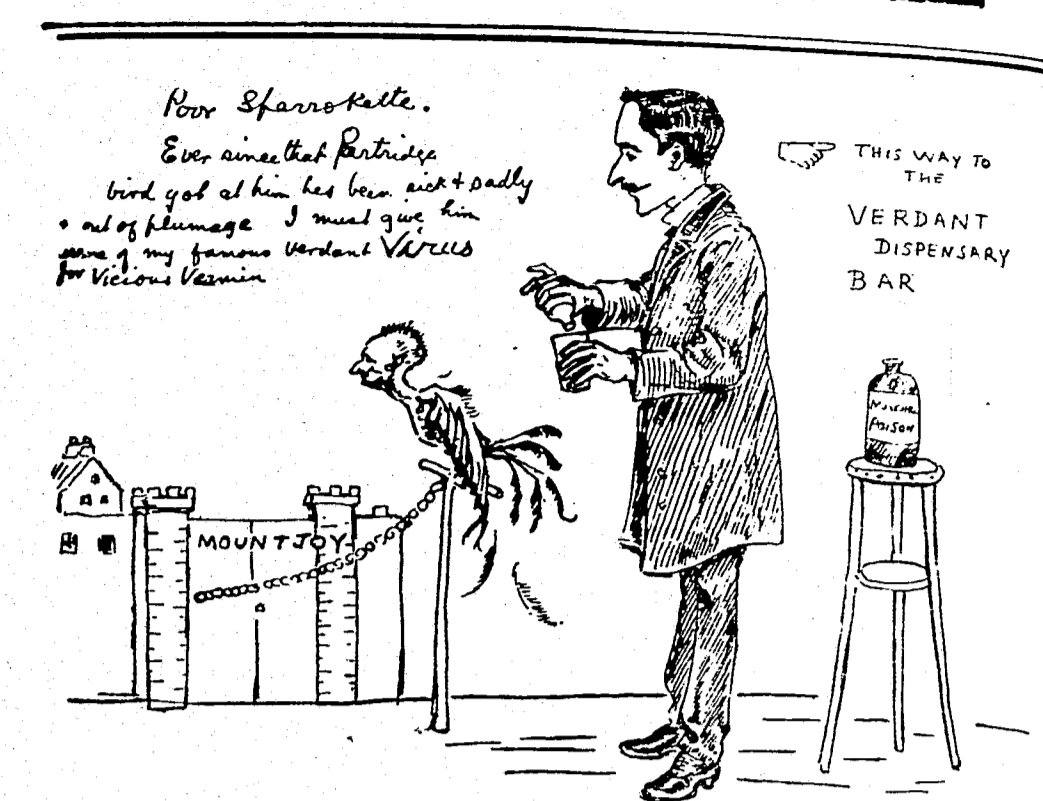 Poor Sparrokette.
Ever since that Partridge
bird got at him hes been sick & sadly
out of plumage I must give him
some of my famous Verdant Virus
for Vicious Vermin
THIS WAY TO
THE
VERDANT
DISPENSARY
BAR
POISON
MOUNTJOY